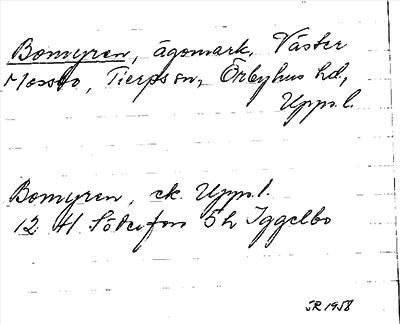 Bomyren, ägomark, Väster
Mossbo, Tierps sn, Örbyhus hd,
Upps. l.
Bomyren, ek. Upps. l.
12 H Söderfors 5h Iggelbo
SR 1958